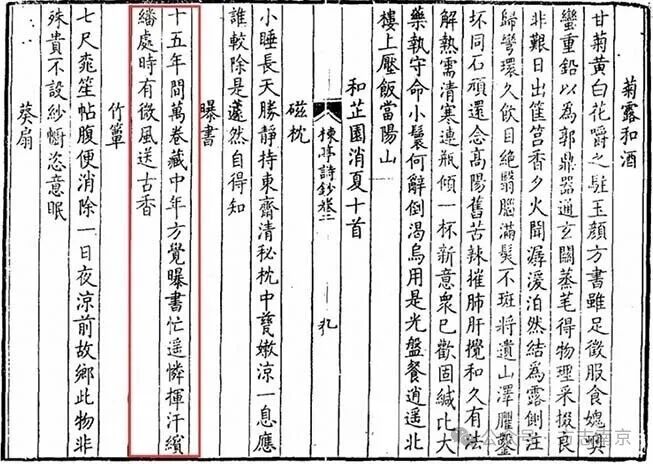 菊露和酒
甘菊黄白花嚼之駐玉顏方書雖足徵服食媿輿
蠻重鉛以為郭鼎器通玄關蒸芼得物理采掇良
非艱日出筐筥香夕火聞潺湲泊然結為露側注
歸彎環久飲目絕翳腦滿鬢不斑將遺山澤臞鑿
坏同石頑還念高陽舊苦辣摧肺肝攪和久有法
解熱需清寒連瓶傾一杯新意眾已歡固緘比大
藥執守命小鬟何辭倒渴烏用是光盤餐逍遥北
樓上壓飯當陽山
和芷園消夏十首
楝亭詩鈔卷三
九
磁枕
小睡長天勝靜持東齋清秘枕中甆嫩涼一息應
誰較除是蘧然自得知
曝書
十五年間萬卷藏中年方覺曝書忙遥憐揮汗繽
繙處時有微風送古香
竹簟
七尺桃笙帖腹便消除一日夜涼前故鄉此物非
殊貴不設紗㡡恣意眠
葵扇
公众号
南京